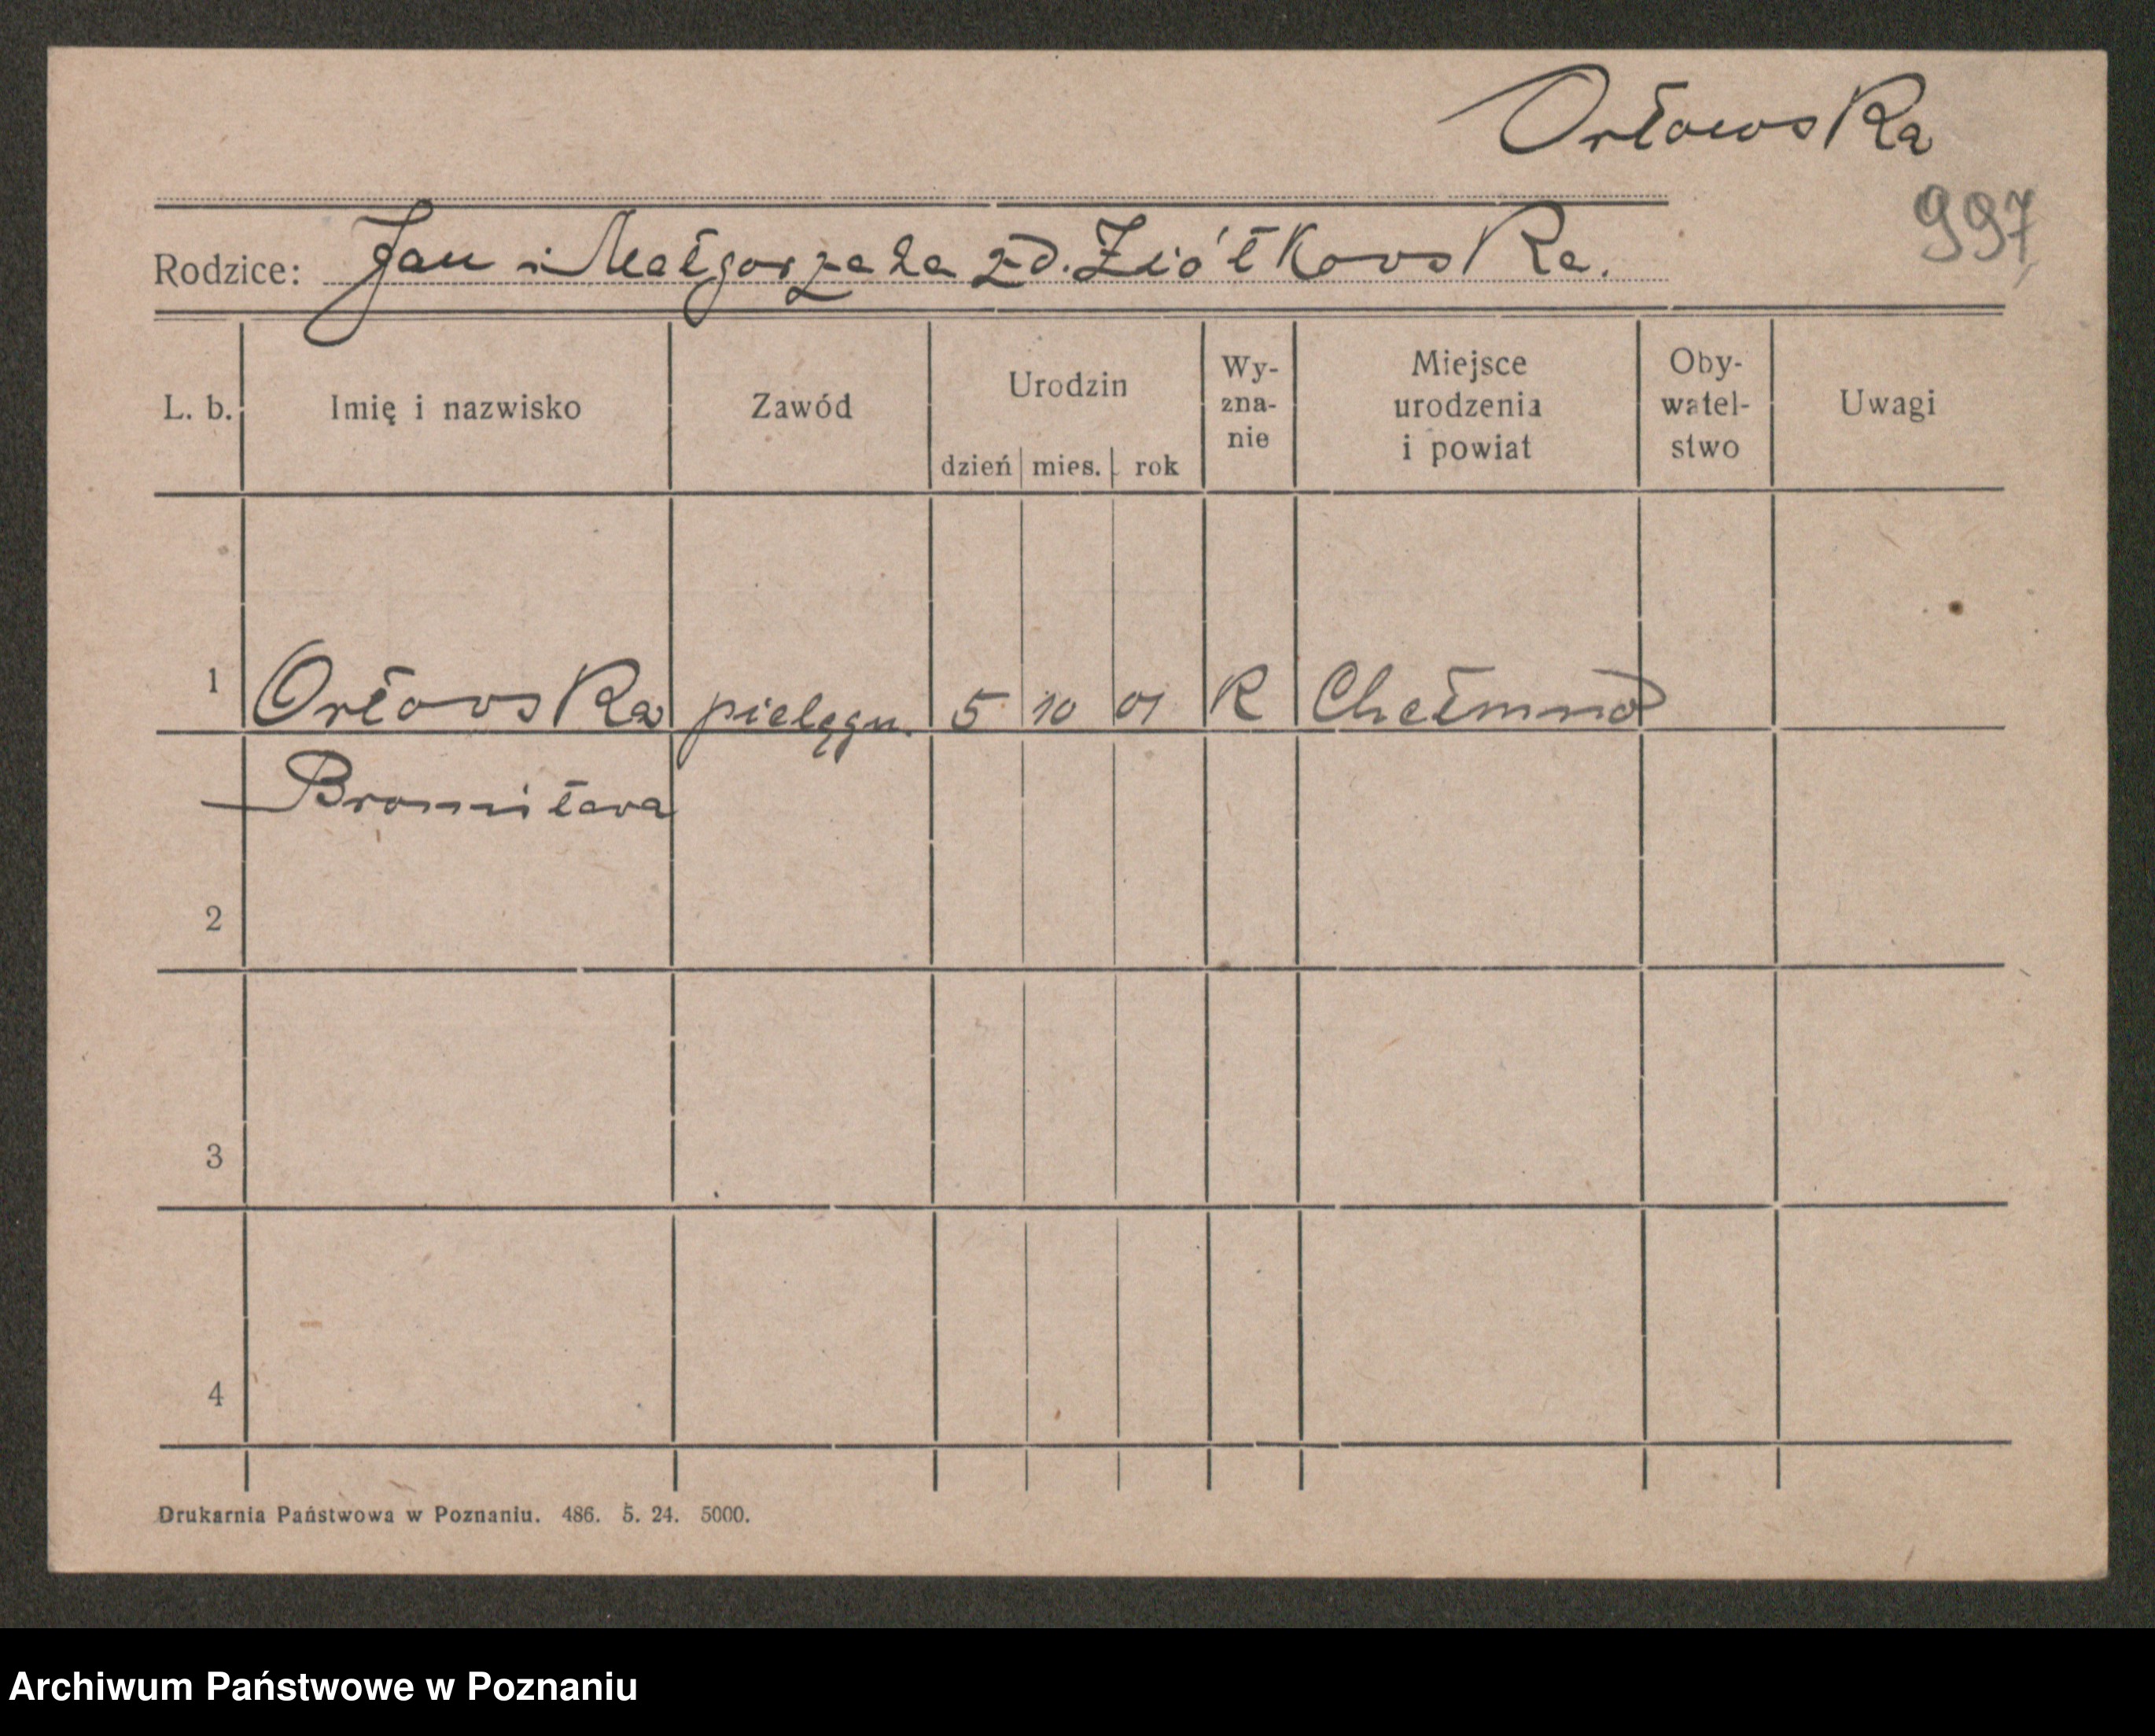 Orłowska
997
Rodzice: Jan i Małgorzata zd. Ziółkowska.
L. b. Imię i nazwisko Zawód Urodzin dzień mies. rok Wy-zna-nie Miejsce urodzenia i powiat Oby-watel-stwo Uwagi
1 Orłowska pielęgn. 5 10 01 R Chełmno
Bronisława
2
3
4
Drukarnia Państwowa w Poznaniu. 486. 5. 24. 5000.
Archiwum Państwowe w Poznaniu